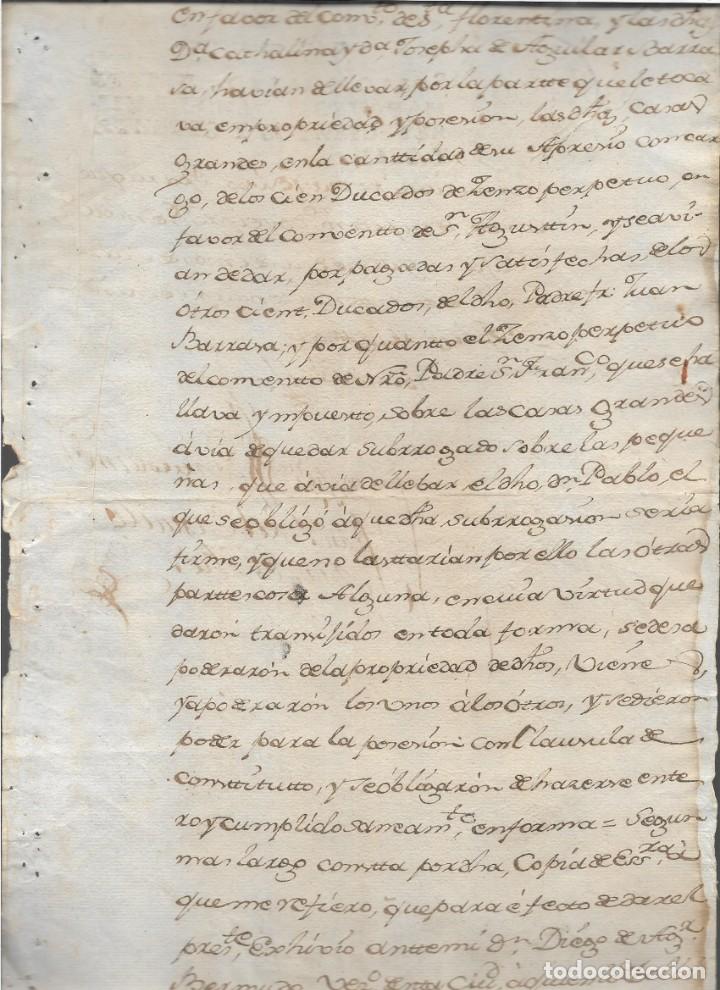 en favor del Comv.to de S.ta florentina, y las dhas
D.a Cathalina y d.a Josepha de Aguilar Barra
sa, havian de llevar, por la partte que le toca
va, em propriedad y posesion, las dhas, casas
grandes, en la canttidad de su Apresio con car
go, de los cien Ducados de Zenzo perpetuo, en
favor del Comventto de S.n Agusttin, y se avi
an de dar, por pagadas y sattisfechas, de los
otros cient, Ducados, del dho, Padre fr. Juan
Barrasa; y por quantto el Zenzo perpetuo
del comventto de Nro, Padre S.n Fran.co, que se ha
llava ympuesto, sobre las casas grandes
avia de quedar subrrogado sobre las peque
ñas, que avia de llebar, el dho, d.n Pablo, el
que se obligó á que dha, subrrogasion seria
firme, y que no lasttarian por ello las otras
parttes cosa Alguna, en cuia virtud que
daron transijidos en toda forma, se desa
poderaron de la propriedad de dhos, Viene
s, y apoderaron los unos á los otros, y se dieron
poder para la posesion con Clausula de
consttitutto, y se obligaron de hazerse ente
ro y cumplido saneam.to, en forma = Segun
mas largo constta por dha, Copia de Ess.ra á
que me refiero, que para efecto de dar el
pres.te, Exhivio antte mi d.n Diego de Ag.r
Bermudo Vez.o de estta Ciu.d, a quien
todocoleccion
todocoleccion.net